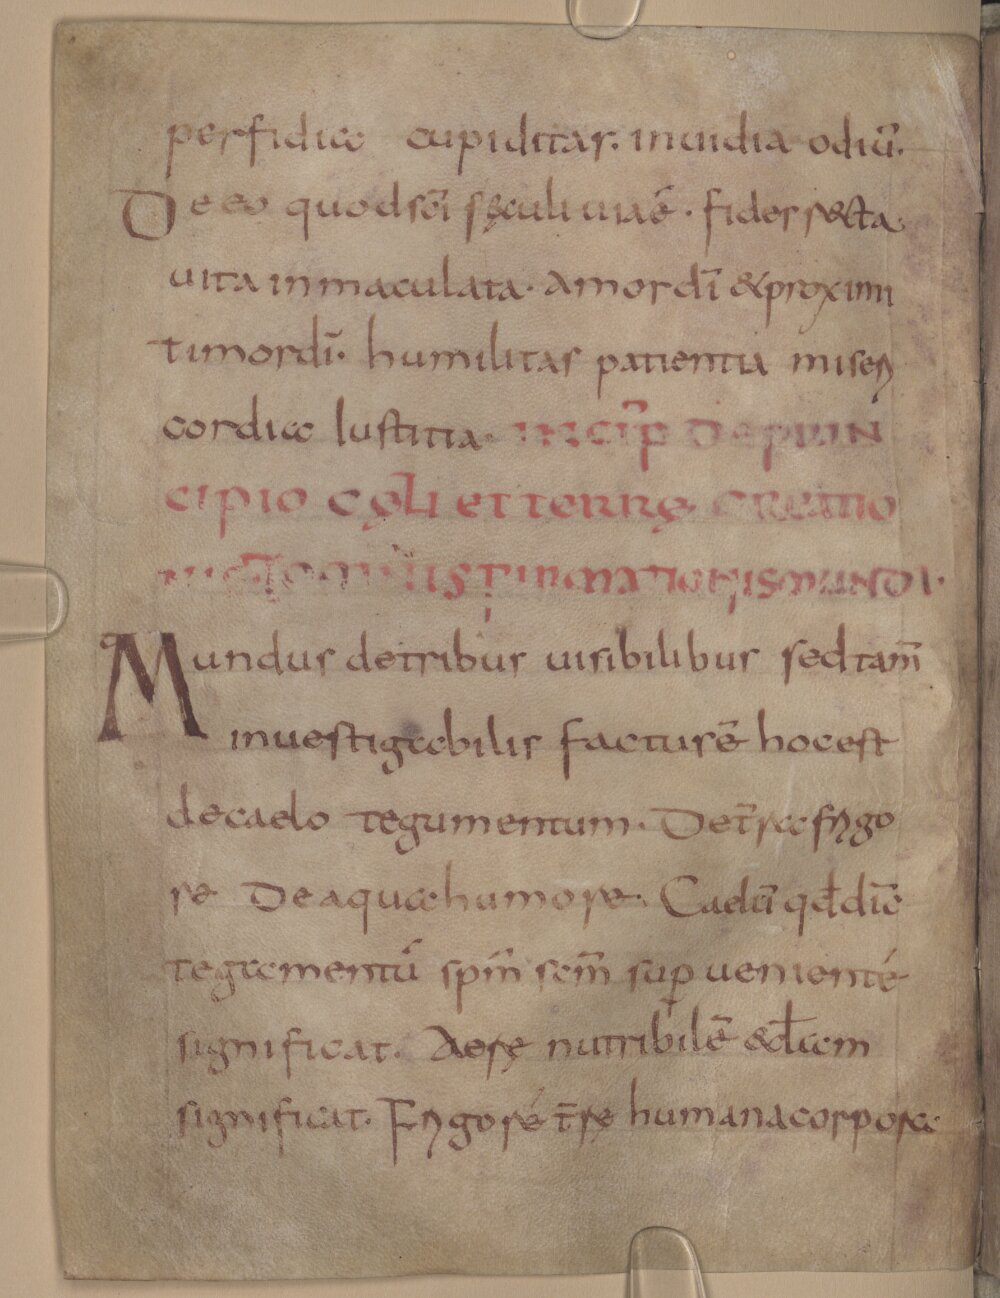 perfidia cupiditas. inuidia odiū.
De eo quod scī sęculi uia ē. fides recta.
uita inmaculata. amor dī & proximi
timor dī. humilitas patientia miseri
cordia Iustitia. INCIP DE PRIN
CIPIO CĘLI ET TERRĘ CREATIO
FIRMATIONIS MUNDI.
Mundus de tribus uisibilibus sed tam̄
inuestigabilis factus ē hoc est
de caelo tegumentum. De t̄ra frigo
re De aqua humore. Caelū qd dic̄
tegamentū spm̄ scm̄ sup uenientē
significat. Aerę nutribilē
significat. Frigore t̄rę humana corpora